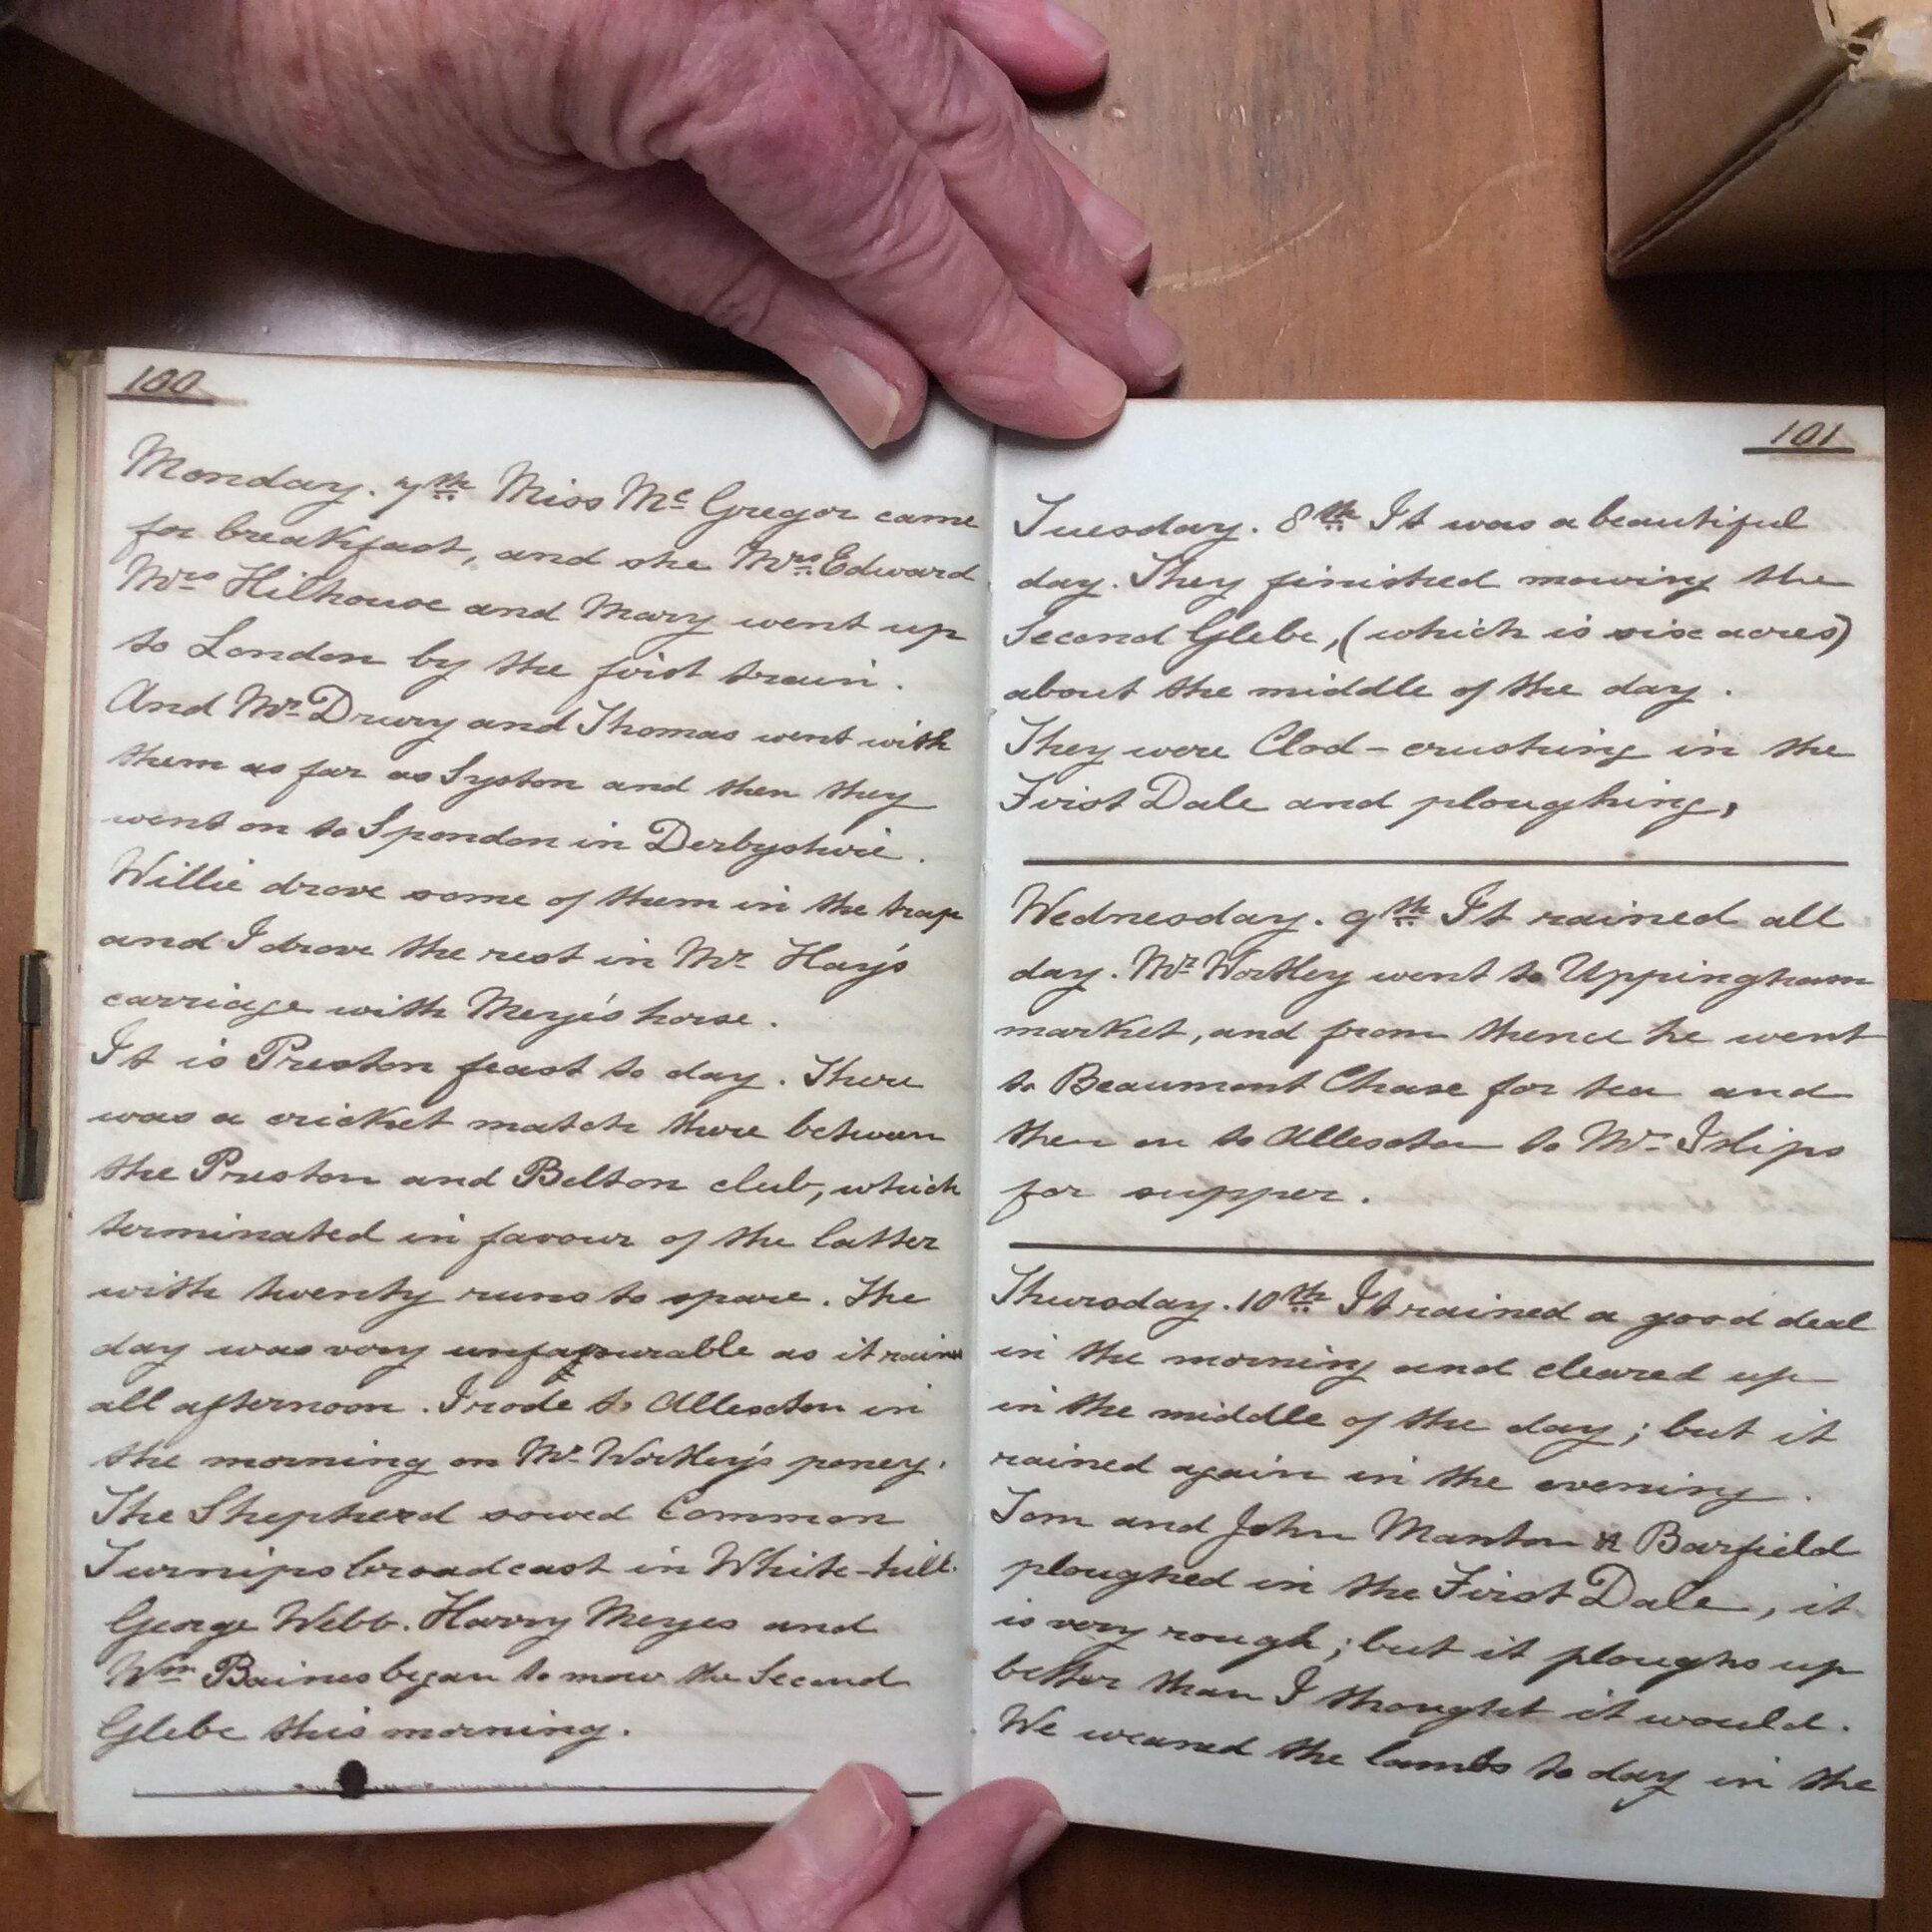 100
Monday. 7th Miss Mc Gregor came
for breakfast, and she Mrs. Edward
Mrs Hilhouse and Mary went up
to London by the first train.
And Mr Drury and Thomas went with
them as far as Syston and then they
went on to Spondon in Derbyshire.
Willie drove some of them in the trap
and I drove the rest in Mr. Hay's
carriage with Meye's horse.
It is Preston feast to day. There
was a cricket match there between
the Preston and Belton club, which
terminated in favour of the latter
with twenty runs to spare. The
day was very unfavourable as it rained
all afternoon. I rode to Allexton in
the morning on Mr. Wortley's poney.
The Shepherd sowed Common
Turnips broadcast in White-hill.
George Webb. Harry Meyes and
Wm Baines began to mow the Second
Glebe this morning.
101
Tuesday. 8th It was a beautiful
day. They finished mowing the
Second Glebe, (which is six acres)
about the middle of the day.
They were Clod-crushing in the
First Dale and ploughing,
Wednesday. 9th It rained all
day. Mr Wortley went to Uppingham
market, and from thence he went
to Beaumont Chase for tea and
then on to Allexton to Mr. Islips
for supper.
Thursday. 10th It rained a good deal
in the morning and cleared up
in the middle of the day; but it
rained again in the evening.
Tom and John Manton & Barfield
ploughed in the First Dale, it
is very rough; but it ploughs up
better than I thought it would.
We weaned the lambs to day in the